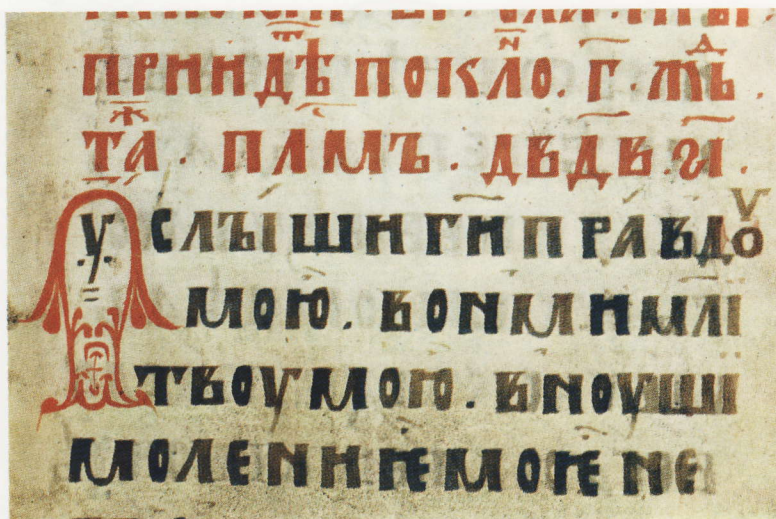 ПРИИДѢТЕ ПОКЛО. Г. МЛ҃Ъ.
ТА. П҃ЛМЪ. Д҃ВДВ. ЅІ.
У СЛЪІШИ Г҃И ПРАВДОУ
МОЮ. ВОНМИ МЛІ
ТВОУ МОЮ. ВНОУШІ
МОЛЕНИѤ МОѤ НЕ